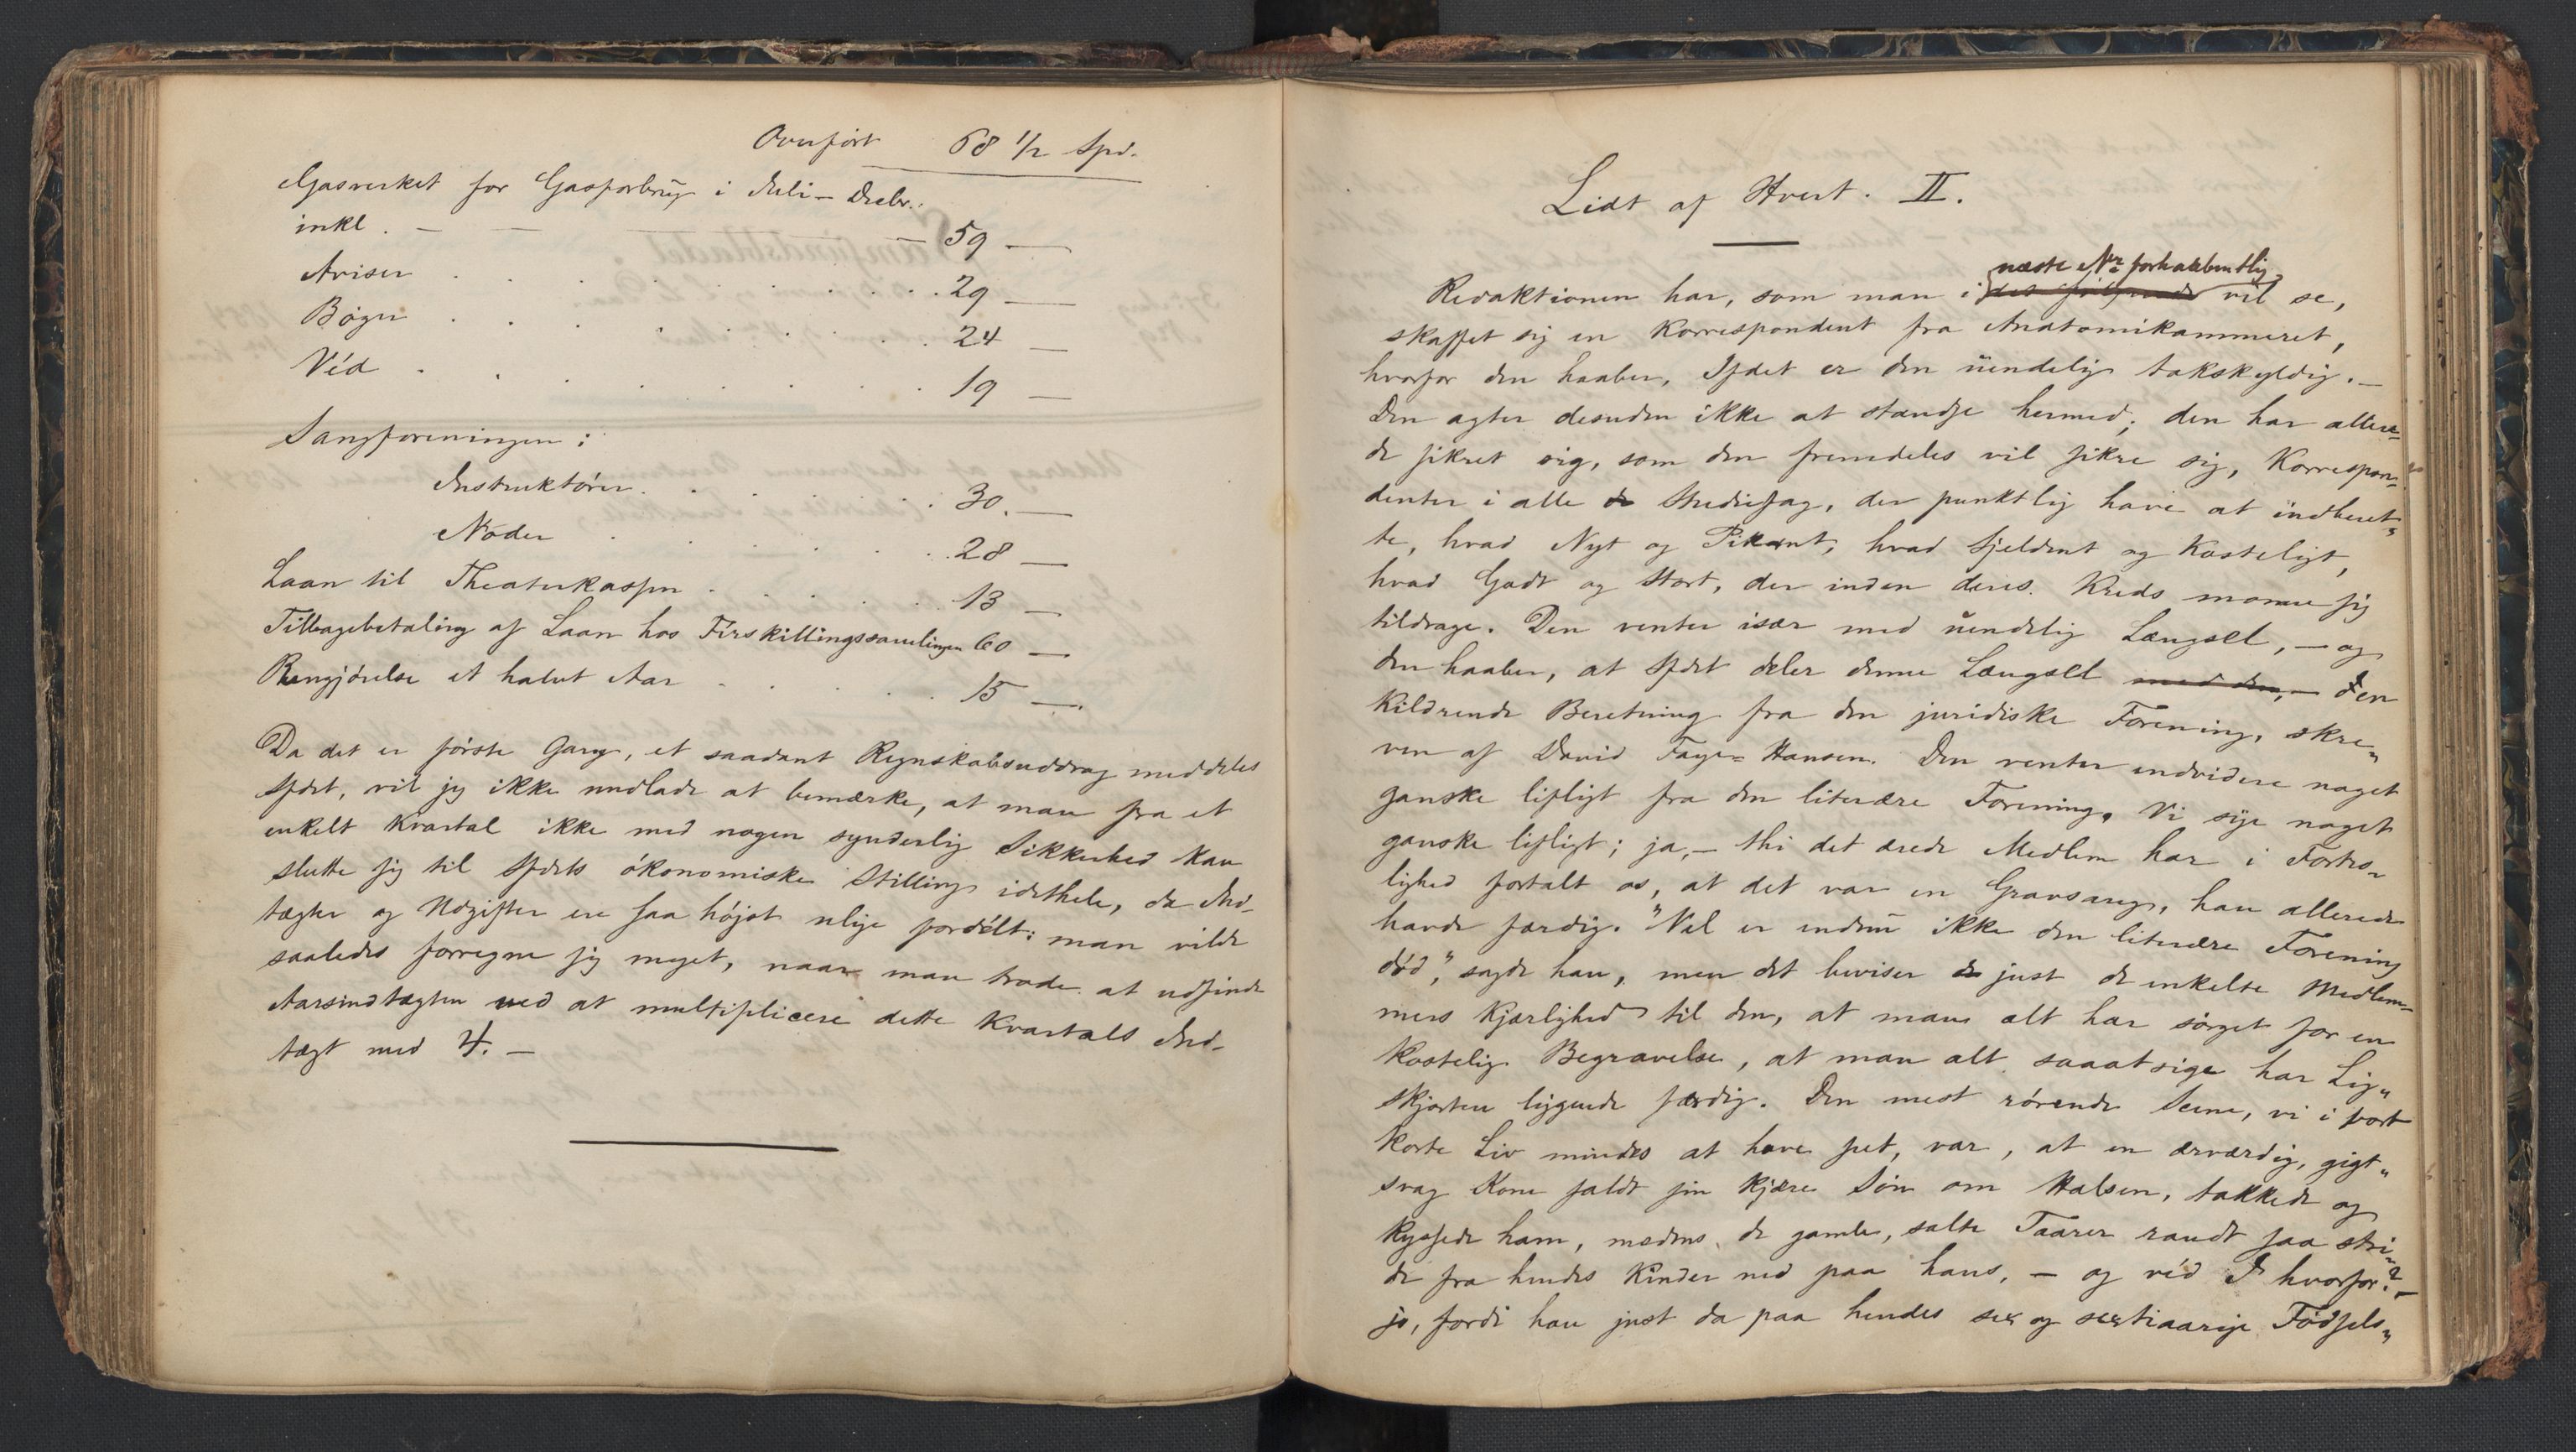 Overført 68 1/2 Spd.
Gasverket for Gasforbrug i Juli - Decbr.
inkl. — — — 59 —
Aviser . . . . . . . 29 —
Bøger . . . . . . . 24 —
Véd . . . . . . . 19 —
Sangforeningen:
Instruktører . . . . 30. —
Noder . . . . . . 28 —
Laan til Theaterkassen . . . . 13 —
Tilbagebetaling af Laan hos Firskillingssamlingen 60 —
Rengjørelse et halvt Aar . . . . 15 —.
Da det er første Gang, et saadant Regnskabsuddrag meddeles
Sfdet, vil jeg ikke undlade at bemærke, at man fra et
enkelt Kvartal ikke med nogen synderlig Sikkerhed kan
slutte sig til Sfdets økonomiske Stilling idethele, da Ind-
tægter og Udgifter ere saa højst ulige fordélt: man vilde
saaledes forregne sig meget, naar man trode at udfinde
Aarsindtægten ved at multiplicere dette Kvartals Ind-
tægt med 4. —
Lidt af Hvert. II.
næste Nr forhaabentlig
Redaktionen har, som man i det følgende vil se,
skaffet sig en Korrespondent fra Anatomikammeret,
hvorfor den haaber, Sfdet er den uendelig takskyldig. —
Den agter desuden ikke at standse hermed; den har allere-
de sikret sig, som den fremdeles vil sikre sig, Korrespon-
denter i alle de Studiefag, der punktlig have at indberet-
te, hvad Nyt og Pikant, hvad Sjeldent og Kosteligt,
hvad Godt og Stort, der inden deres Kreds monne sig
tildrage. Den venter især med uendelig Længsel, — og
den haaber, at Sfdet deler denne Længsel med den, — den
kildrende Beretning fra den juridiske Forening, skre-
ven af David Faye-Hansen. Den venter endvidere noget
ganske lifligt fra den literære Forening. Vi sige noget
ganske lifligt; ja, — thi det ærede Medlem har i Fortro-
lighed fortalt os, at det var en Gravsang, han allerede
havde færdig. "Vel er endnu ikke den literære Forening
død," sagde han, men det beviser de just de enkelte Medlem-
mers Kjærlighed til den, at man alt har sørget for en
kostelig Begravelse, at man alt saaatsige har Lig-
skjorten liggende færdig. Den mest rørende Scene, vi i vort
korte Liv mindes at have set, var, at en ærværdig, gigt-
svag Kone faldt sin kjære Søn om Halsen, takkede og
kyssede ham, medens de gamle, salte Taarer randt saa stri-
de fra hendes Kinder ned paa hans, — og véd I hvorfor? —
jo, fordi han just da paa hendes sex og sextiaarige Fødsels-